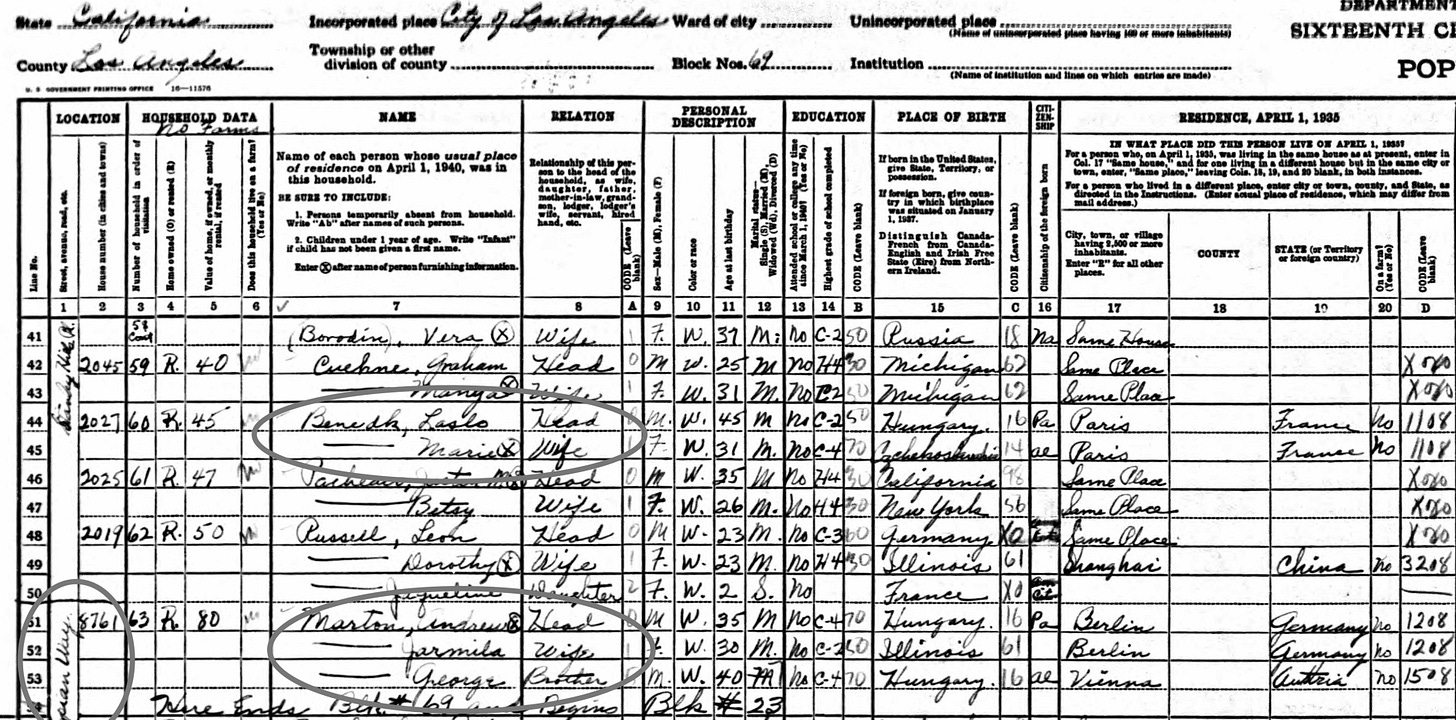 DEPARTMENT
State California Incorporated place City of Los Angeles Ward of city Unincorporated place
(Name of unincorporated place having 100 or more inhabitants)
SIXTEENTH CE
Township or other
County Los Angeles division of county Block Nos. 69 Institution
(Name of institution and lines on which entries are made)
POP
U. S. GOVERNMENT PRINTING OFFICE 16—11576
LOCATION HOUSEHOLD DATA NAME RELATION PERSONAL DESCRIPTION EDUCATION PLACE OF BIRTH CITI-ZEN-SHIP RESIDENCE, APRIL 1, 1935
No Farms
Line No.
Street, avenue, road, etc.
House number (in cities and towns)
Number of household in order of visitation
Home owned (O) or rented (R)
Value of home, if owned, or monthly rental, if rented
Does this household live on a farm? (Yes or No)
Name of each person whose usual place
of residence on April 1, 1940, was in
this household.
BE SURE TO INCLUDE:
1. Persons temporarily absent from household.
Write "Ab" after names of such persons.
2. Children under 1 year of age. Write "Infant"
if child has not been given a first name.
Enter ⓧ after name of person furnishing information.
Relationship of this per-
son to the head of the
household, as wife,
daughter, father,
mother-in-law, grand-
son, lodger, lodger's
wife, servant, hired
hand, etc.
CODE (Leave blank)
Sex—Male (M), Female (F)
Color or race
Age at last birthday
Marital status—
Single (S), Married (M),
Widowed (Wd), Divorced (D)
Attended school or college any time since March 1, 1940? (Yes or No)
Highest grade of school completed
CODE (Leave blank)
If born in the United States,
give State, Territory, or
possession.
If foreign born, give coun-
try in which birthplace
was situated on January
1, 1937.
Distinguish Canada-
French from Canada-
English and Irish Free
State (Eire) from North-
ern Ireland.
CODE (Leave blank)
Citizenship of the foreign born
IN WHAT PLACE DID THIS PERSON LIVE ON APRIL 1, 1935?
For a person who, on April 1, 1935, was living in the same house as at present, enter in
Col. 17 "Same house," and for one living in a different house but in the same city or
town, enter, "Same place," leaving Cols. 18, 19, and 20 blank, in both instances.
For a person who lived in a different place, enter city or town, county, and State, as
directed in the Instructions. (Enter actual place of residence, which may differ from
mail address.)
City, town, or village
having 2,500 or more
inhabitants.
Enter "R" for all other
places.
COUNTY
STATE (or Territory
or foreign country)
On a farm? (Yes or No)
CODE (Leave blank)
1 2 3 4 5 6 7 8 A 9 10 11 12 13 14 B 15 C 16 17 18 19 20 D
41 58 Cont (Borodin), Vera ⓧ Wife 1 F. W. 37 M. No C-2 50 Russia 18 Na Same House
42 2045 59 R. 40 Graham Head 0 M W. 25 M No H4 30 Michigan 62 Same Place X0X0
43 ⓧ Wife 1 F. W. 31 M. No C2 Michigan 62 Same Place X0X0
44 2027 60 R. 45 Benedk, Laslo Head 0 M. W. 45 M No C-2 50 Hungary. 16 Pa Paris France No 1108
45 Marie ⓧ Wife 1 F. W. 31 M. No C-4 70 14 al Paris France No 1108
46 2025 61 R. 47 Head 0 M W. 35 M No H4 30 California 98 Same Place X0X0
47 Betsy Wife 1 F. W. 26 M. No H4 30 New York 56 Same Place X0X0
48 2019 62 R. 50 Russell, Leon Head 0 M W- 23 M. No C-3 60 Germany X0 Same Place X0X0
49 Dorothy ⓧ Wife 1 F. W. 23 M. No H4 30 Illinois 61 Shanghai China No 3208
50 Jaqueline Daughter 2 F. W. 2 S. No France X0 Am Cit
51 8761 63 R. 80 Marton, Andrew ⓧ Head 0 M W. 35 M No C-4 70 Hungary. 16 Pa Berlin Germany No 1208
52 Jarmila Wife 1 F. W. 30 M. No C-2 50 Illinois 61 Berlin Germany No 1208
53 George Brother M. W. 40 M No C-4 70 Hungary 16 al Vienna Austria No 1508
Here Ends Blk. # 69 and Begins Blk # 23